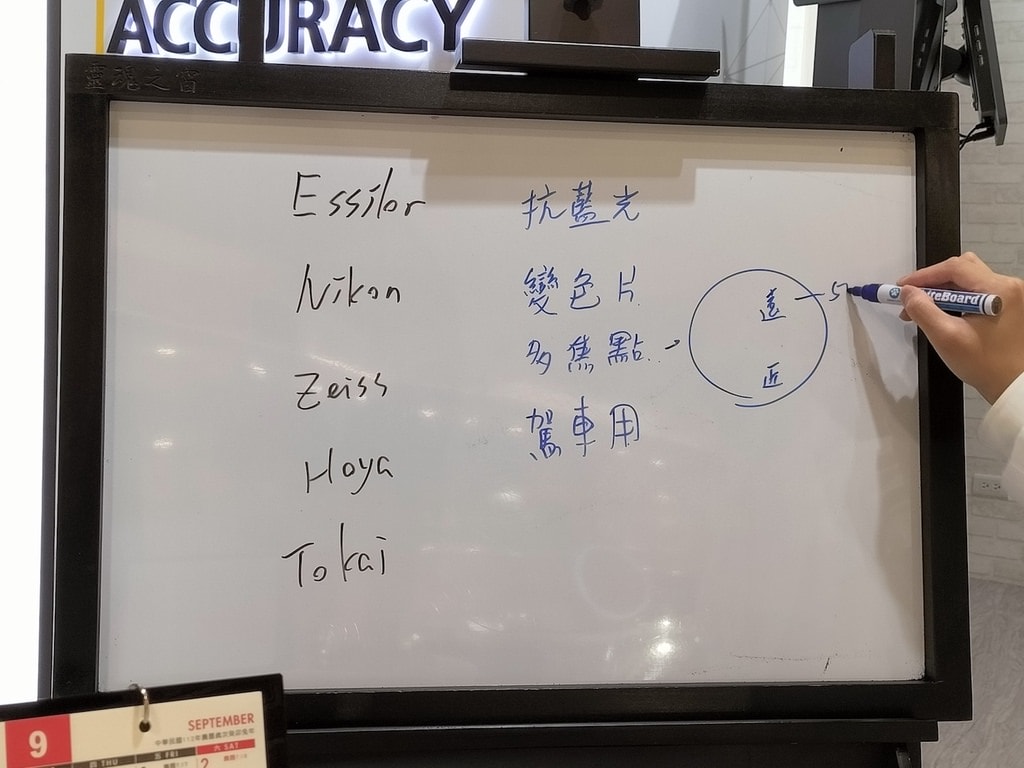 ACCURACY
靈魂之窗
Essilor
Nikon
Zeiss
Hoya
Tokai
抗藍光
變色片
多焦點
駕車用
遠
近
5
WhiteBoard
9
SEPTEMBER
四 THU
五 FRI
六 SAT
2